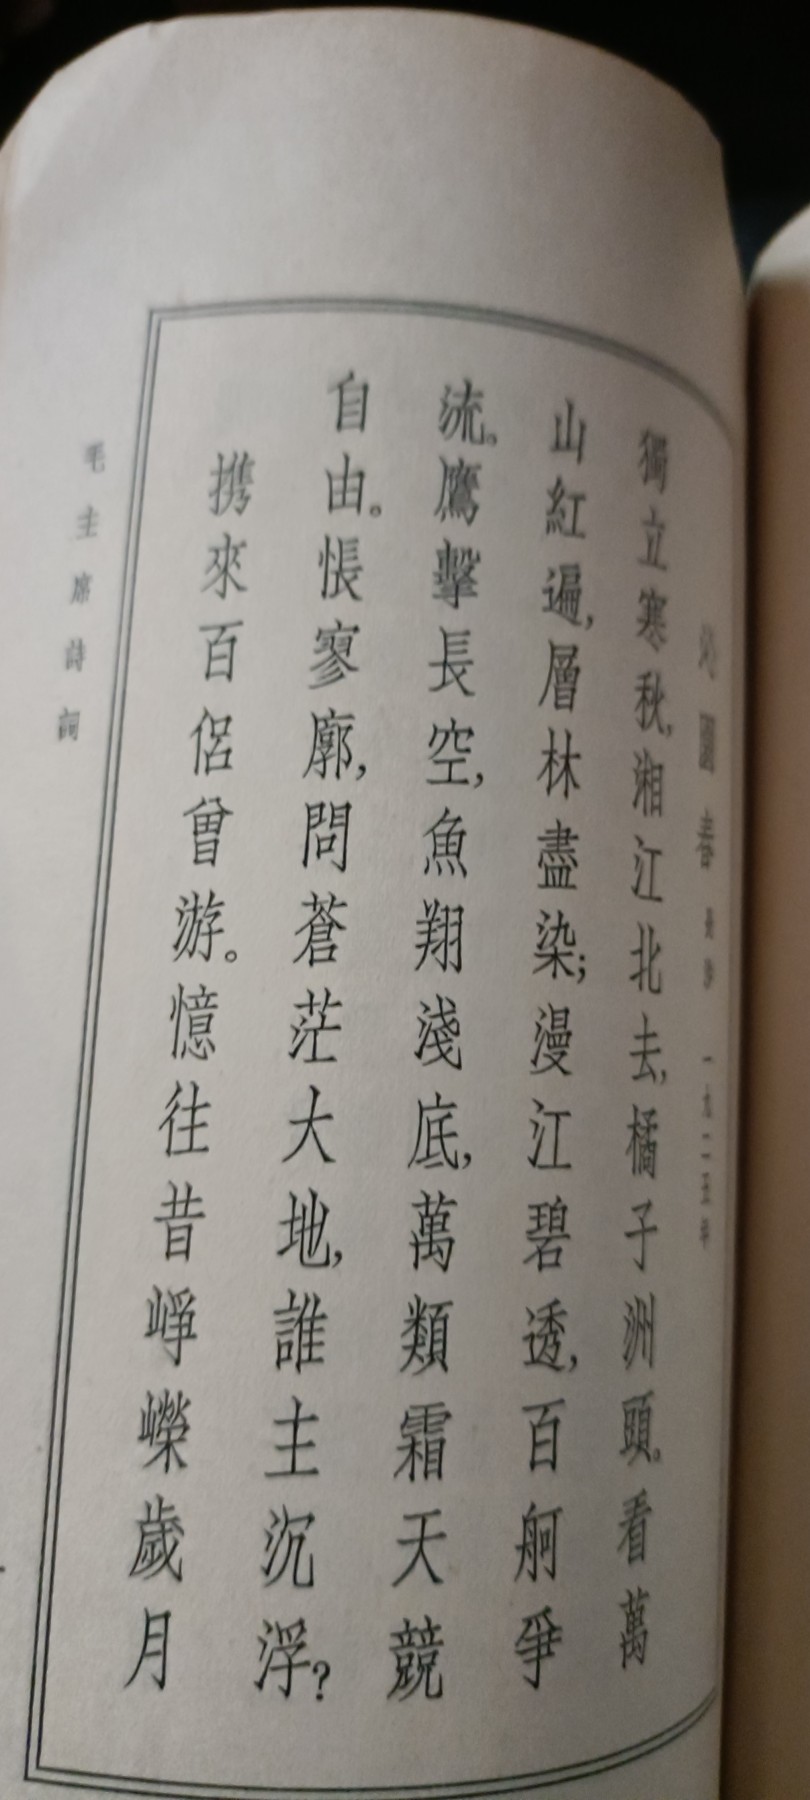 沁園春 長沙 一九二五年
獨立寒秋,湘江北去,橘子洲頭。看萬
山紅遍,層林盡染;漫江碧透,百舸爭
流。鷹擊長空,魚翔淺底,萬類霜天競
自由。悵寥廓,問蒼茫大地,誰主沉浮?
攜來百侶曾游。憶往昔崢嶸歲月
毛主席詩詞